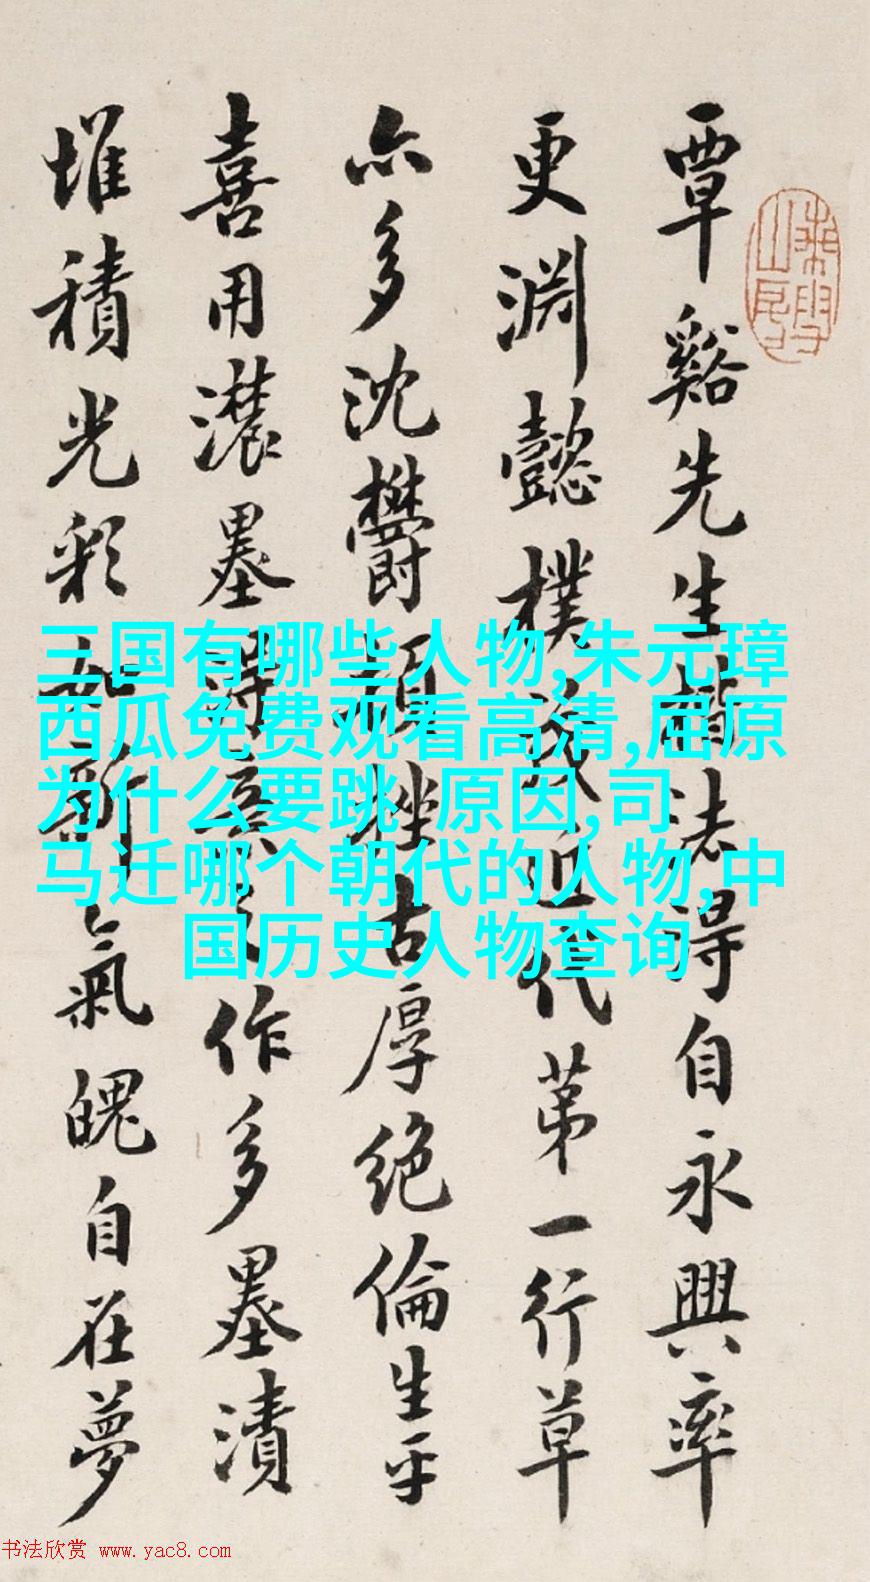 覃谿先生楷法得自永興率
更淵懿樸茂近代第一行草
亦多沈鬱頓挫古厚絕倫生平
喜用濃墨得意之作多墨漬
堆積光彩如新氣魄自在夢
三国有哪些人物,朱元璋
西瓜免费观看高清,屈原
为什么要跳 原因,司
马迁哪个朝代的人物,中
国历史人物查询
书法欣赏 www.yac8.com